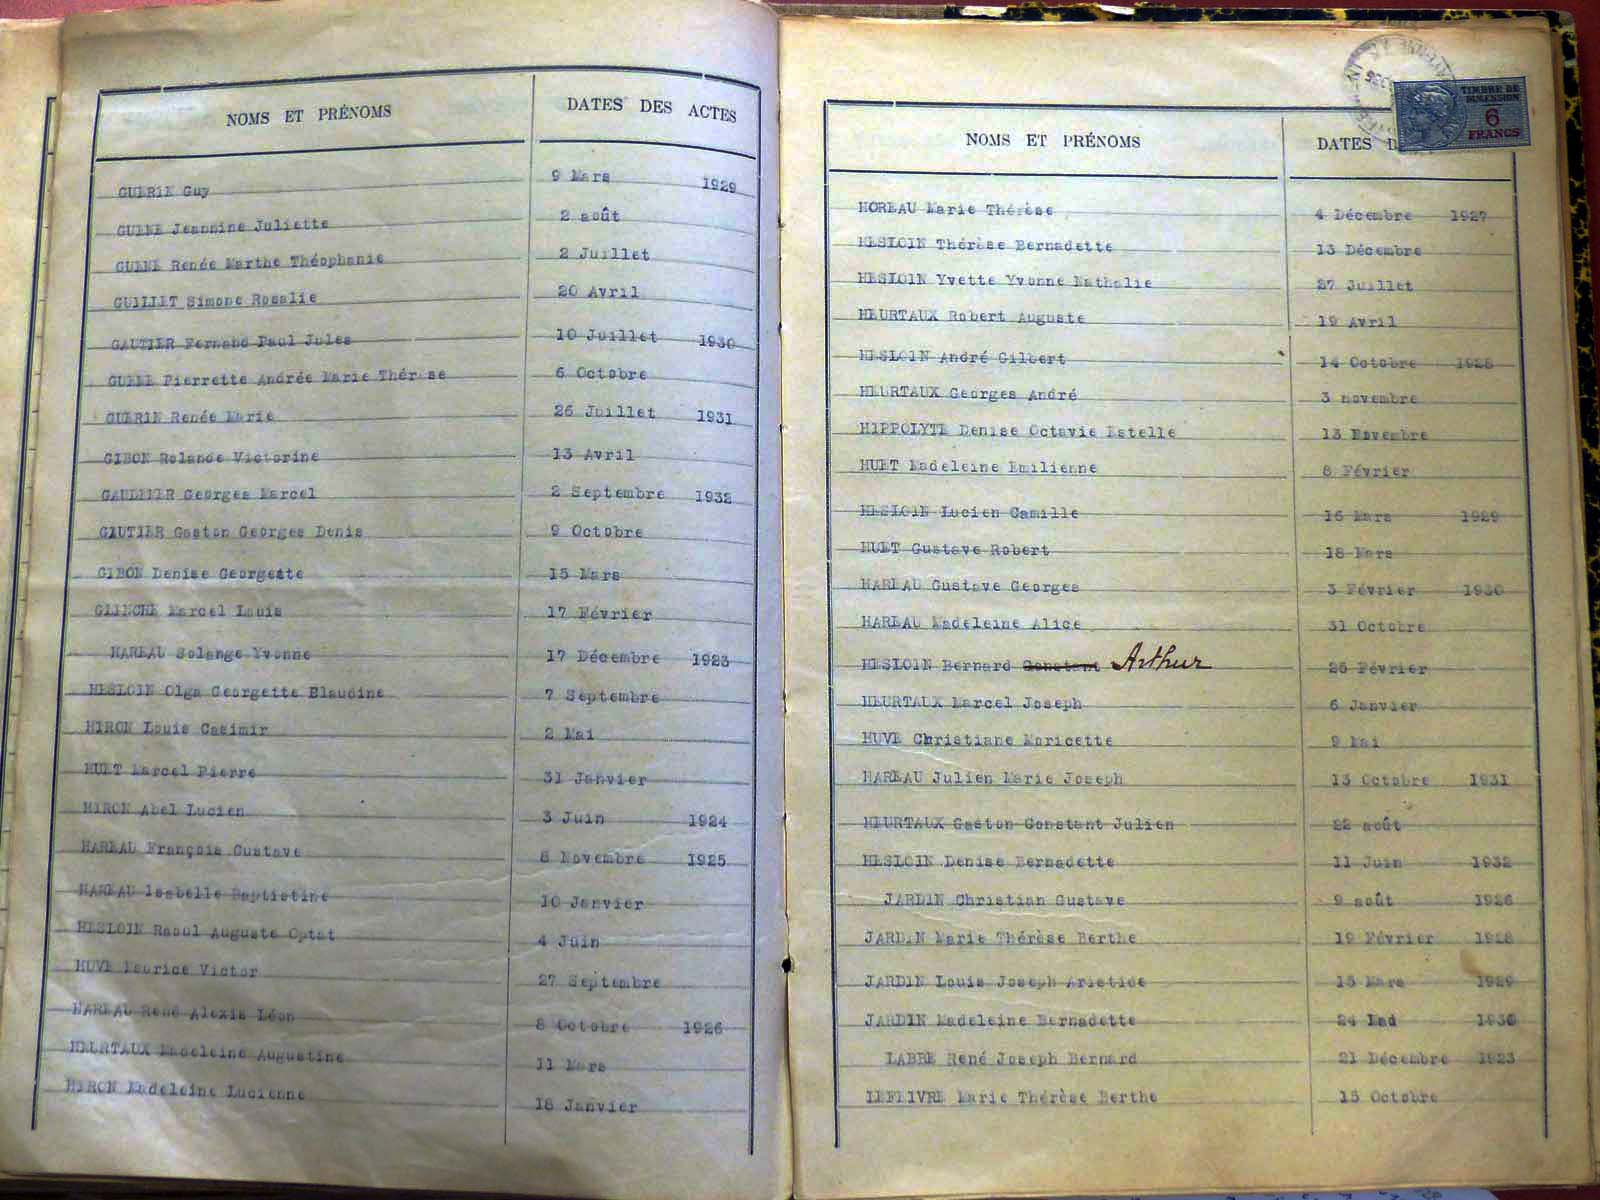 NOMS ET PRÉNOMS DATES DES ACTES
GUERIN Guy 9 Mars 1929
GUENE Jeannine Juliette 2 août
GUENE Renée Marthe Théophanie 2 Juillet
GUILLET Simone Rosalie 20 Avril
GAUTIER Fernand Paul Jules 10 Juillet 1930
GUENE Pierrette Andrée Marie Thérèse 6 Octobre
GUERIN Renée Marie 26 Juillet 1931
GIBON Rolande Victorine 13 Avril
GAULTIER Georges Marcel 2 Septembre 1932
GAUTIER Gaston Georges Denis 9 Octobre
GIBON Denise Georgette 15 Mars
Marcel Louis 17 Février
HAREAU Solange Yvonne 17 Décembre 1923
HESLOIN Olga Georgette Blaudine 7 Septembre
HIRON Louis Casimir 2 Mai
HUET Marcel Pierre 31 Janvier
HIRON Abel Lucien 3 Juin 1924
HAREAU François Gustave 8 Novembre 1925
HAREAU Isabelle Baptistine 10 Janvier
HESLOIN Raoul Auguste Optat 4 Juin
HUVE Maurice Victor 27 Septembre
HAREAU René Alexis Léon 8 Octobre 1926
HEURTAUX Madeleine Augustine 11 Mars
HIRON Madeleine Lucienne 18 Janvier
TIMBRE DE
DIMENSION
6
FRANCS
NOMS ET PRÉNOMS DATES D
HOREAU Marie Thérèse 4 Décembre 1927
HESLOIN Thérèse Bernadette 13 Décembre
HESLOIN Yvette Yvonne Nathalie 27 Juillet
HEURTAUX Robert Auguste 19 Avril
HESLOIN André Gilbert 14 Octobre 1928
HEURTAUX Georges André 3 novembre
HIPPOLYTE Denise Octavie Estelle 13 Novembre
HUET Madeleine Emilienne 8 Février
HESLOIN Lucien Camille 16 Mars 1929
HUET Gustave Robert 18 Mars
HAREAU Gustave Georges 3 Février 1930
HAREAU Madeleine Alice 31 Octobre
HESLOIN Bernard Constant Arthur 25 Février
HEURTAUX Marcel Joseph 6 Janvier
HUVE Christiane Moricette 9 Mai
HAREAU Julien Marie Joseph 13 Octobre 1931
HEURTAUX Gaston Constant Julien 22 août
HESLOIN Denise Bernadette 11 Juin 1932
JARDIN Christian Gustave 9 août 1926
JARDIN Marie Thérèse Berthe 19 Février 1928
JARDIN Louis Joseph Aristide 15 Mars 1929
JARDIN Madeleine Bernadette 24 1930
LABBE René Joseph Bernard 21 Décembre 1923
LEFEIVRE Marie Thérèse Berthe 15 Octobre